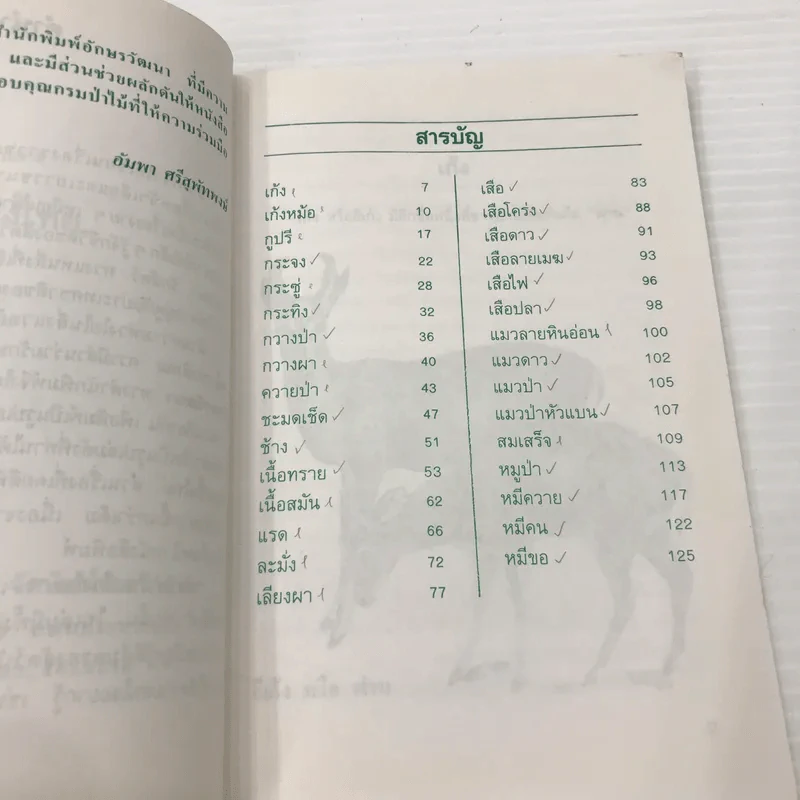 สำนักพิมพ์อักษรวัฒนา ที่มีความ
และมีส่วนช่วยผลักดันให้หนังสือ
อบคุณกรมป่าไม้ที่ให้ความร่วมมือ
อัมพา ศรีสุพัทพงษ์
สารบัญ
เก้ง 7
เก้งหม้อ 10
กูปรี 17
กระจง 22
กระซู่ 28
กระทิง 32
กวางป่า 36
กวางผา 40
ควายป่า 43
ชะมดเช็ด 47
ช้าง 51
เนื้อทราย 53
เนื้อสมัน 62
แรด 66
ละมั่ง 72
เลียงผา 77
เสือ 83
เสือโคร่ง 88
เสือดาว 91
เสือลายเมฆ 93
เสือไฟ 96
เสือปลา 98
แมวลายหินอ่อน 100
แมวดาว 102
แมวป่า 105
แมวป่าหัวแบน 107
สมเสร็จ 109
หมูป่า 113
หมีควาย 117
หมีคน 122
หมีขอ 125